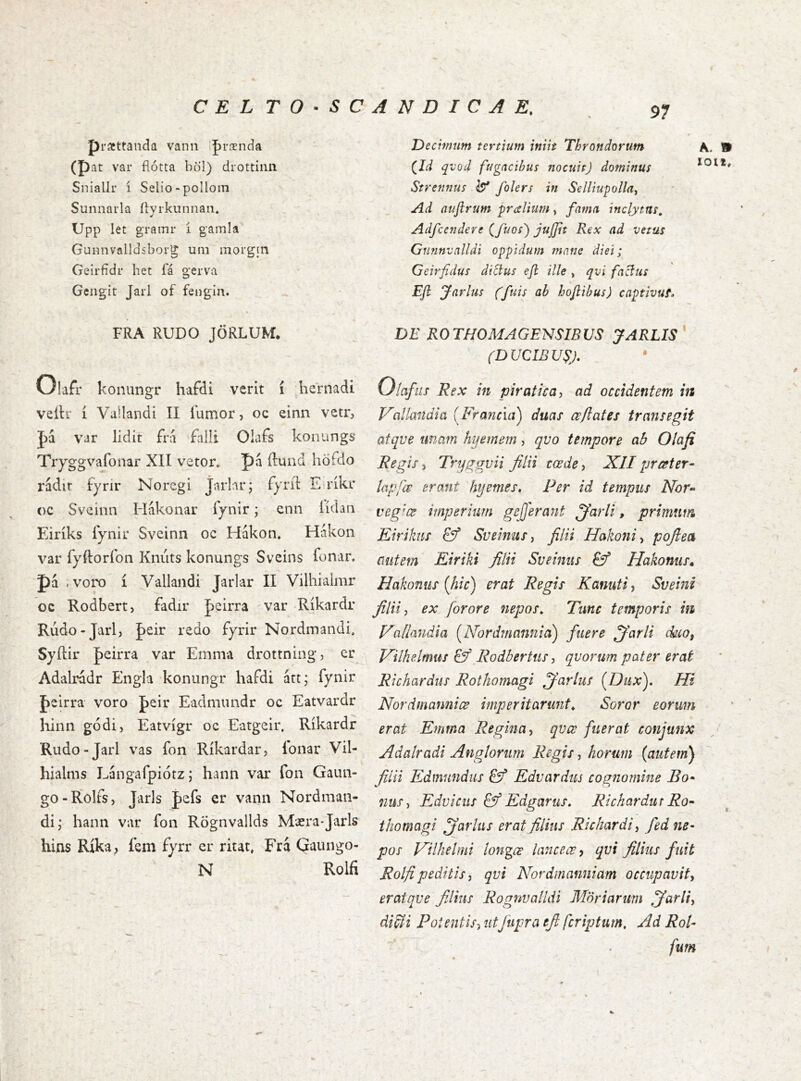 CELTO-SCANDICAE. 97
Þrættanda vann Þrænda
(Þat var flótta böl) drottinn
Sniallr í Selio-pollom
Sunnarla ſtyrkunnan.
Upp let gramr í gamla
Gunnvalldsborg um morgin
Geirfidr het ſá gerva
Gengit Jarl of fengin.
FRA RUDO JÖRLUM.
Olafr konungr hafdi verit í hernadi
veſtr í Vallandi II ſumor, oc einn vetr,
þá var lidit frá falli Olafs konungs
Tryggvaſonar XII vetor. Þá ſtund höfdo
rádit fyrir Noregi Jarlar; fyrſt Eiríkr
oc Sveinn Hákonar ſynir; enn ſídan
Eiríks ſynir Sveinn oc Hákon. Hákon
var ſyſtorſon Knúts konungs Sveins ſonar.
Þá voro í Vallandi Jarlar II Vilhialmr
oc Rodbert, fadir þeirra var Ríkardr
Rúdo-Jarl, þeir redo fyrir Nordmandi.
Syſtir þeirra var Emma drottning, er
Adalrádr Engla konungr hafdi átt; ſynir
þeirra voro þeir Eadmundr oc Eatvardr
hinn gódi, Eatvígr oc Eatgeir. Ríkardr
Rudo-Jarl vas ſon Ríkardar, ſonar Vil-
hialms Lángaſpiótz; hann var ſon Gaun-
go-Rolfs, Jarls þeſs er vann Nordman-
di; hann var ſon Rögnvallds Mæra-Jarls
hins Ríka, ſem fyrr er ritat. Frá Gaungo-
N Rolfi
Decimum tertium iniit Throndorum
(Id qvod fugacibus nocuit) dominus
Strennus & ſolers in Selliupolla,
Ad auſtrum prælium, fama inclytus.
Adſcendere (ſuos) juſſit Rex ad vetus
Gunnvalldi oppidum mane diei;
Geirfidus dictus eſt ille, qvi factus
Eſt Jarlus (ſuis ab hoſtibus) captivus.
A. D
1012.
DE ROTHOMAGENSIBUS JARLIS
(DUCIBUS).
Olafus Rex in piratica, ad occidentem in
Vallandia (Francia) duas æſtates transegit
atqve unam hyemem, qvo tempore ab Olafi
Regis, Tryggvii filii cæde, XII præter-
lapſæ erant hyemes. Per id tempus Nor-
vegiæ imperium geſſerant Jarli, primum
Eirikus & Sveinus, filii Hakoni, poſtea
autem Eiriki filii Sveinus & Hakonus.
Hakonus (hic) erat Regis Kanuti, Sveini
filii, ex ſorore nepos. Tunc temporis in
Vallandia (Nordmannia) fuere Jarli duo,
Vilhelmus & Rodbertus, qvorum pater erat
Richardus Rothomagi Jarlus (Dux). Hi
Nordmanniæ imperitarunt. Soror eorum
erat Emma Regina, qvæ fuerat conjunx
Adalradi Anglorum Regis, horum (autem)
filii Edmundus & Edvardus cognomine Bo-
nus, Edvicus & Edgarus. Richardus Ro-
thomagi Jarlus erat filius Richardi, ſed ne-
pos Vilhelmi longæ lanceæ, qvi filius fuit
Rolfi peditis, qvi Nordmanniam occupavit,
eratqve filius Rognvalldi Möriarum Jarli,
dicti Potentis, ut ſupra eſt ſcriptum. Ad Rol-
fum